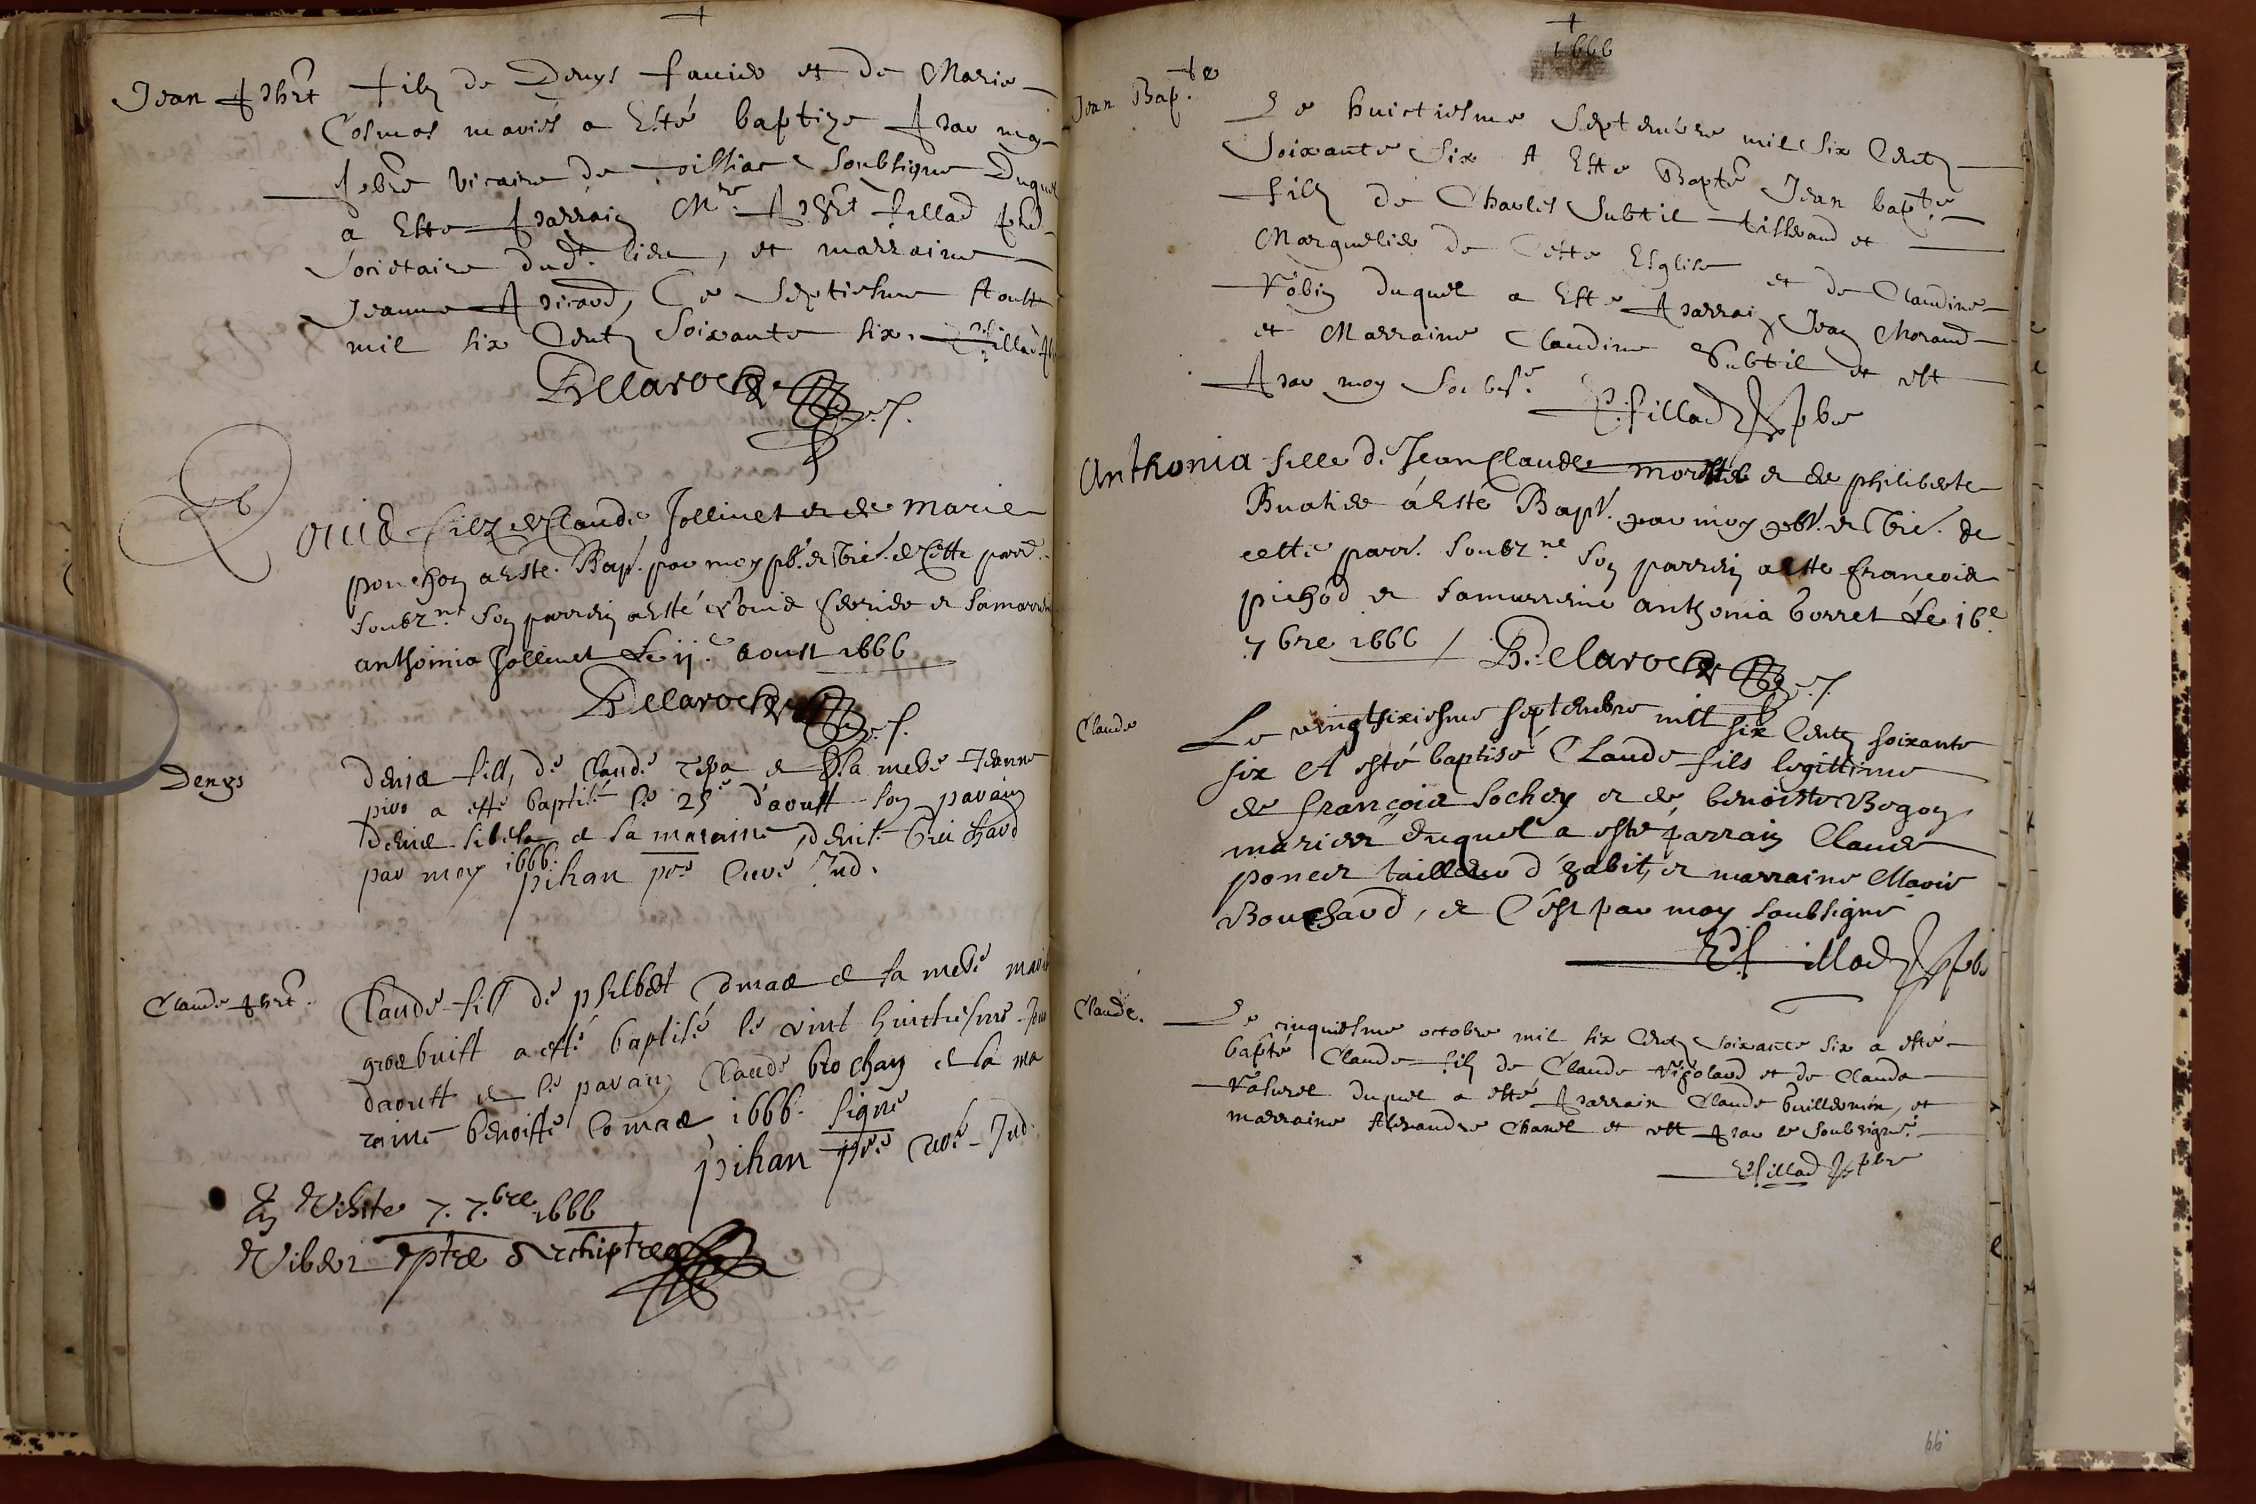 Jean Phrt filz de Denys favier et de Marie
Cosmas mariés a Esté baptize par moy
pbre vicaire de soubsigne Duquel
a Esté parrain Mre Phrt fillad pbr
societaire dudt. lieu, et marraine
Jeanne Ce septiesme Aoust
mil six Centz soixante six. fillad
Delaroche
Louis filz de Claude Jollivet et de marie
ponchon a esté Bap. par moy pb. et vic. de cette parr.
soubz.né son parrein a esté Louis et sa marreine
anthoinia Jollivet Le 11e aoust 1666
Delaroche
Denys
denis fils de Claude et sa mere Jeanne
a esté baptisé le 25e d'aoust son parain
denis et sa maraine denise
par moy 1666.
pihan pre Curé Ind.
Claude Phrt.
Claude fils de philbert Comas et sa mere marie
grosbuist a esté baptisé le vint huictiesme Jour
daoust et le parain Claude brochay et la ma
raine benoiste Comas 1666. signé
pihan pre Curé Ind.
En Visite 7. 7.bre 1666
Archiptre
1666
Jean Bap.te
Le huictiesme Septembre mil six Centz
soixante six A Esté Bapté Jean bapte.
filz de Charles Subtil tisserand et
Marguelier de Cette Esglise et de Claudine
Robin duquel a Esté parrain Jean Morand
et Marraine Claudine Subtil et est
par moy soubsé. P. fillad pbr
Anthonia fille de Jean Claude et de philiberte
a esté Bapt. par moy pbr. et vic. de
cette parr. soubz.né son parrein a esté francois
pichod et sa marreine anthonia borret Le 16e
7bre 1666 / Delaroche
Claude
Le vingtsixiesme septembre mil six Centz soixante
six A esté baptisé Claude fils legittime
de françois sochay et de benoiste Bogon
mariez duquel a esté parrain Claude
poncet tailleur d'habit, et marraine Marie
Bouchard, et C'est par moy soubsigné
fillad pbr
Claude.
Le cinquiesme octobre mil six Centz soixante six a esté
bapté Claude filz de Claude et de Claude
Vaturel duquel a esté parrain Claude Guillermin, et
marraine Alexandre Chanel et est par le soubsigné.
fillad pbr
66